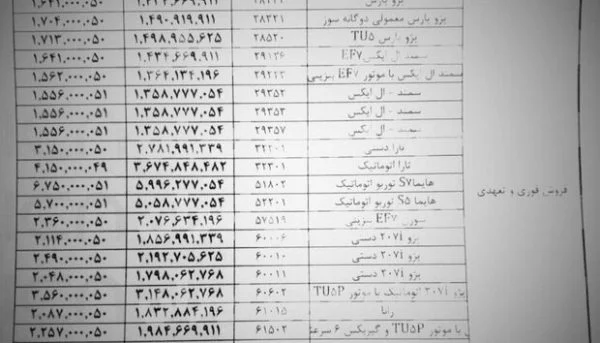 ۱.۶۴۱.۰۰۰.۰۵۰ پژو پارس
۱.۷۰۴.۰۰۰.۰۵۰ ۱.۴۹۰.۹۱۹.۹۱۱ ۲۸۲۲۱ پژو پارس معمولی دوگانه سوز
۱.۷۱۳.۰۰۰.۰۵۰ ۱.۴۹۸.۹۵۵.۶۲۵ ۲۸۵۲۰ پژو پارس TU۵
۱.۶۴۱.۰۰۰.۰۵۰ ۱.۴۳۴.۶۶۹.۹۱۱ ۲۹۱۳۶ سمند ال ایکس EF۷
۱.۵۶۲.۰۰۰.۰۵۰ ۱.۳۶۴.۱۳۴.۱۹۶ ۲۹۲۱۳ سمند ال ایکس با موتور EF۷ بنزینی
۱.۵۵۶.۰۰۰.۰۵۱ ۱.۳۵۸.۷۷۷.۰۵۴ ۲۹۳۵۲ سمند - ال ایکس
۱.۵۵۶.۰۰۰.۰۵۱ ۱.۳۵۸.۷۷۷.۰۵۴ ۲۹۳۵۳ سمند - ال ایکس
۱.۵۵۶.۰۰۰.۰۵۱ ۱.۳۵۸.۷۷۷.۰۵۴ ۲۹۳۵۷ سمند - ال ایکس
۳.۱۵۰.۰۰۰.۰۵۰ ۲.۷۸۱.۹۹۱.۳۳۹ ۳۲۲۰۱ تارا دستی
۴.۱۵۰.۰۰۰.۰۴۹ ۳.۶۷۴.۸۴۸.۴۸۲ ۳۲۳۰۱ تارا اتوماتیک
۶.۷۵۰.۰۰۰.۰۵۱ ۵.۹۹۶.۲۷۷.۰۵۴ ۵۱۸۰۲ هایما S۷ توربو اتوماتیک
فروش فوری و تعهدی
۵.۷۰۰.۰۰۰.۰۵۱ ۵.۰۵۸.۷۷۷.۰۵۴ ۵۲۲۰۱ هایما S۵ توربو اتوماتیک
۲.۳۶۰.۰۰۰.۰۵۰ ۲.۰۷۶.۶۳۴.۱۹۶ ۵۷۵۱۹ سورن EF۷ بنزینی
۲.۱۱۴.۰۰۰.۰۵۰ ۱.۸۵۶.۹۹۱.۳۳۹ ۶۰۰۰۶ پژو ۲۰۷i دستی
۲.۴۹۰.۰۰۰.۰۵۰ ۲.۱۹۲.۷۰۵.۶۲۵ ۶۰۰۱۰ پژو ۲۰۷i دستی
۲.۰۴۸.۰۰۰.۰۵۰ ۱.۷۹۸.۰۶۲.۷۶۸ ۶۰۰۱۱ پژو ۲۰۷i دستی
۳.۵۶۰.۰۰۰.۰۵۰ ۳.۱۴۸.۰۶۲.۷۶۸ ۶۰۶۰۲ پژو ۲۰۷i اتوماتیک با موتور TU۵P
۲.۰۸۷.۰۰۰.۰۵۰ ۱.۸۳۲.۸۸۴.۱۹۶ ۶۱۰۱۵ رانا
۲.۲۵۷.۰۰۰.۰۵۰ ۱.۹۸۴.۶۶۹.۹۱۱ ۶۱۵۰۲ با موتور TU۵P و گیربکس ۶ سرعته